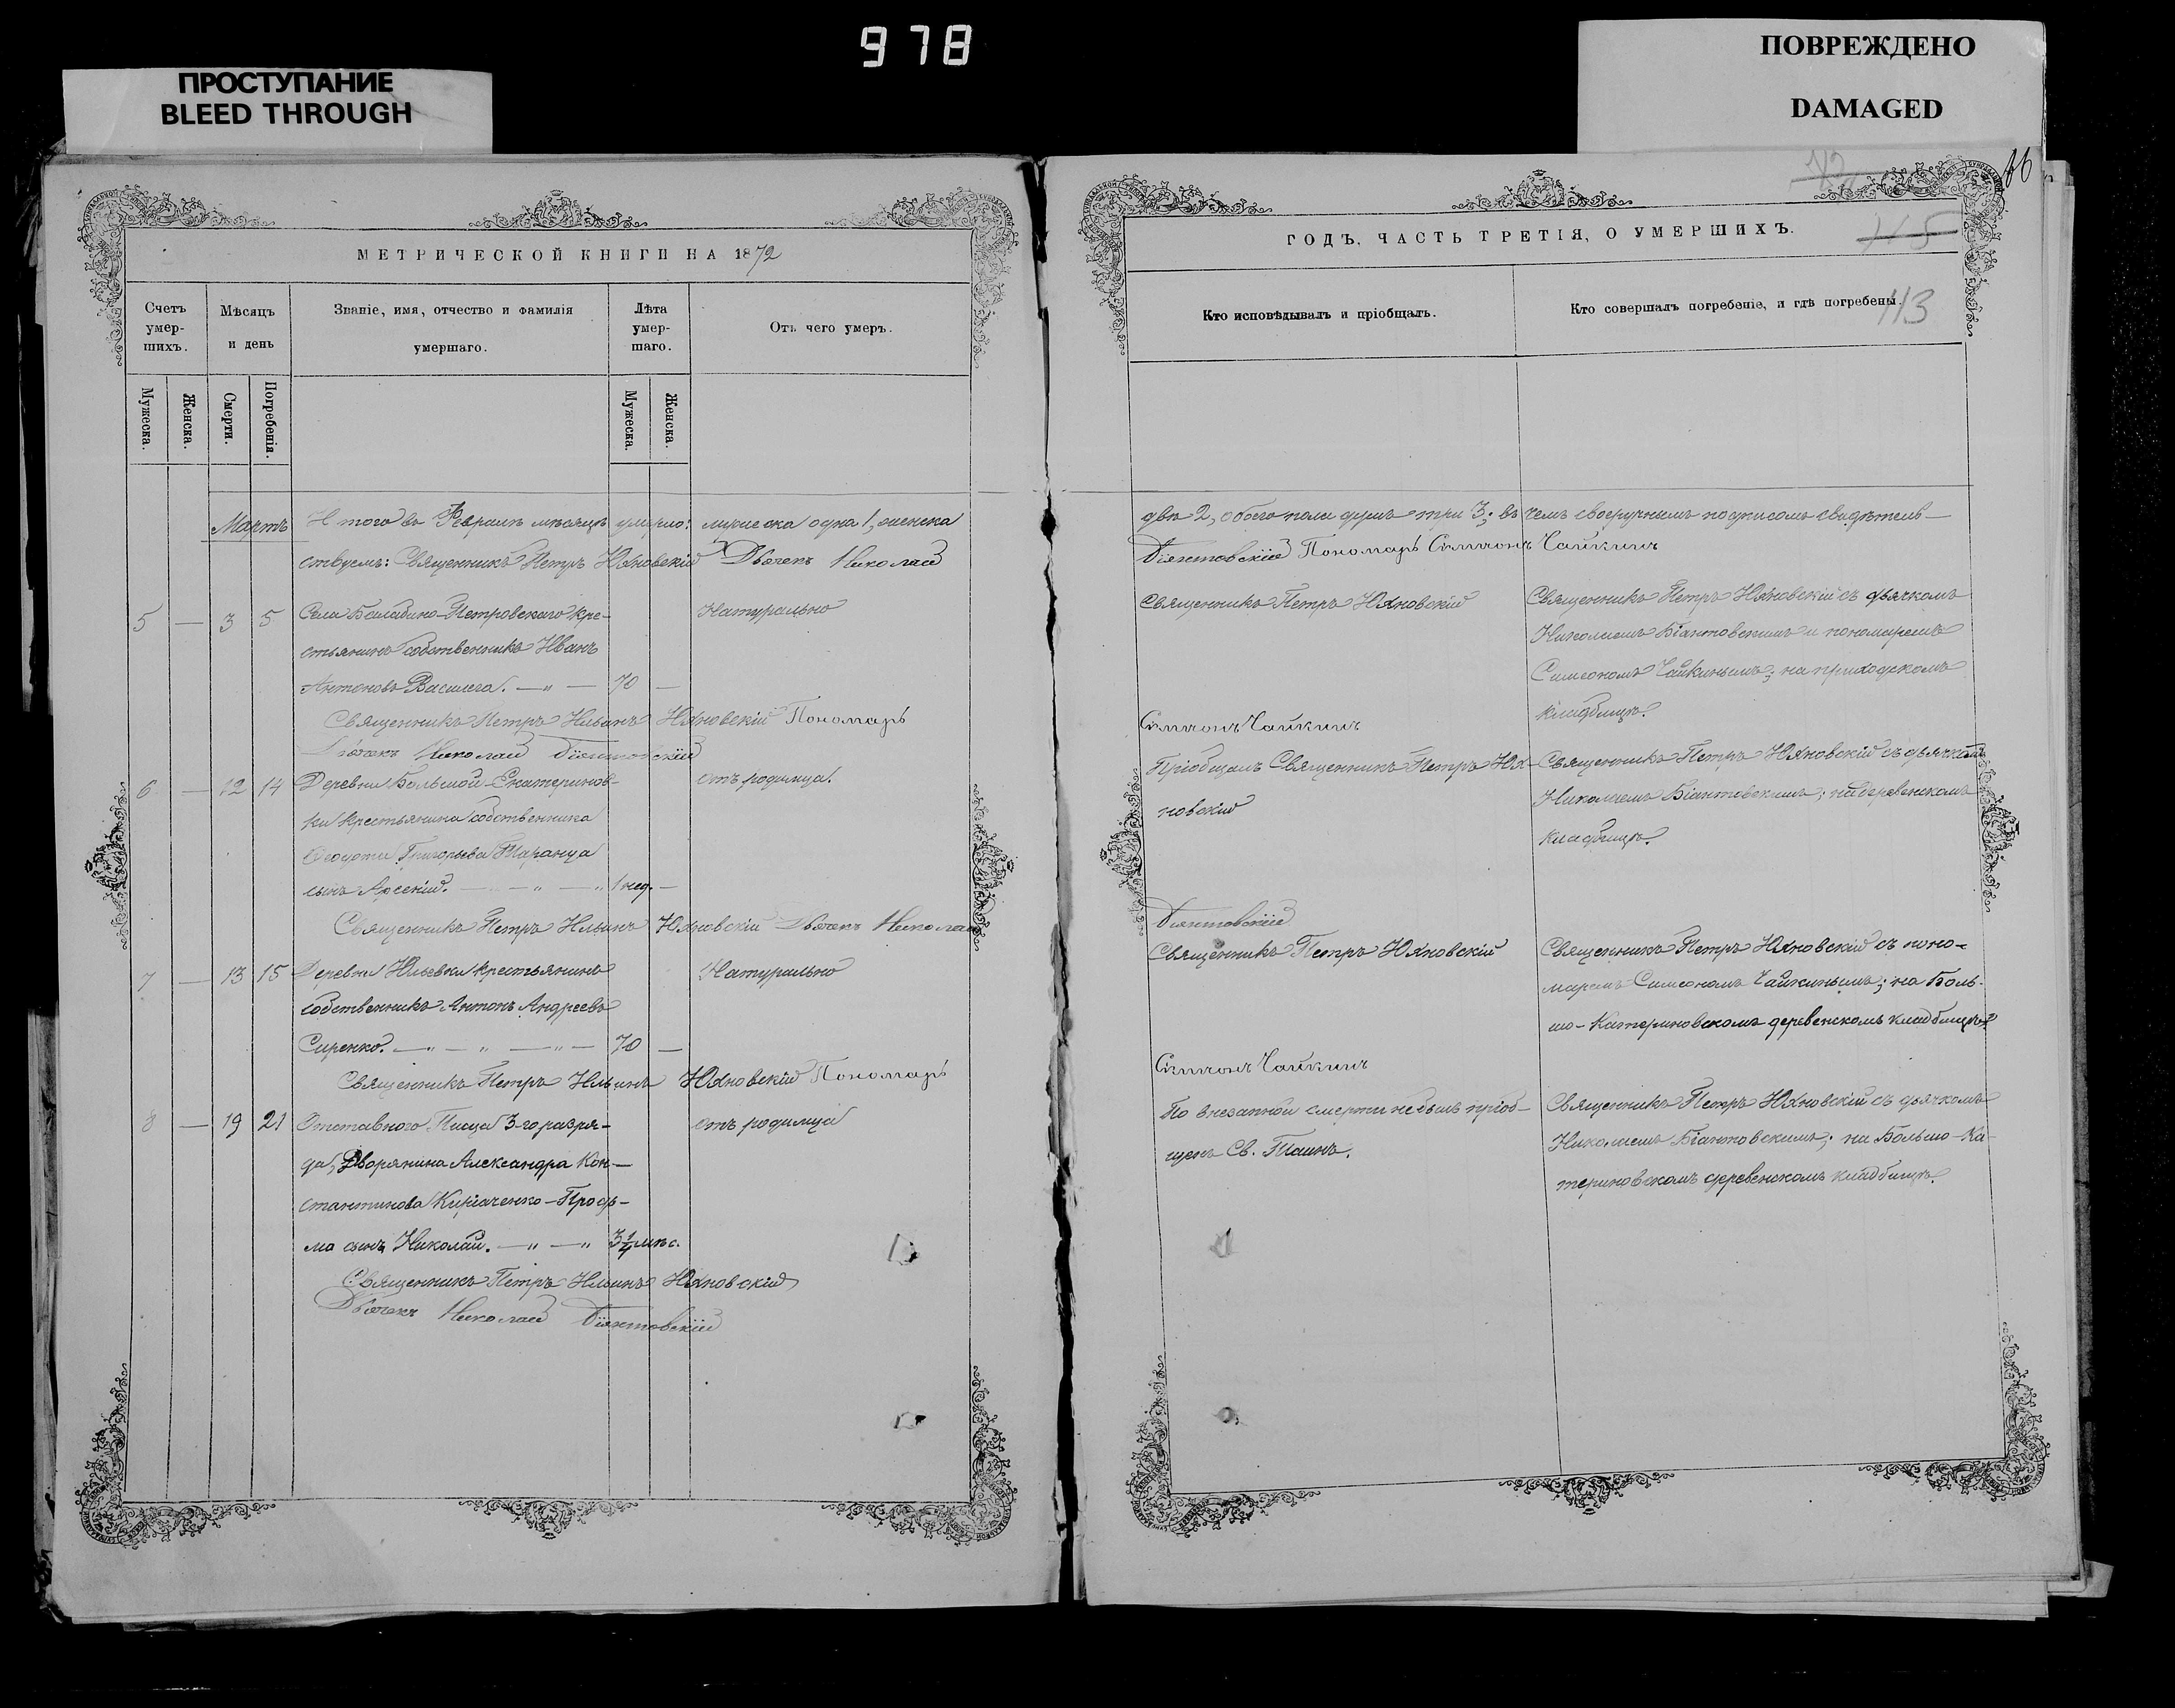 978
ПРОСТУПАНИЕ
BLEED THROUGH
ПОВРЕЖДЕНО
DAMAGED
МЕТРИЧЕСКОЙ КНИГИ НА 1872
Счетъ умер-шихъ.
Мѣсяцъ и день
Званіе, имя, отчество и фамилія умершаго.
Лѣта умер-шаго.
Отъ чего умеръ.
Мужеска.
Женска.
Смерти.
Погребенія.
Мужеска.
Женска.
Мартъ
Итого въ Февралѣ мѣсяцѣ умерло: мужеска одна 1, женска
ствуемъ: Священникъ Петръ Юхновскій Дьячекъ Николай
5 — 3 5 Села Балабино-Петровскаго кре- Натурально
стьянинъ собственникъ Иванъ
Антоновъ Василега. — „ — 70 —
Священникъ Петръ Ильинъ Юхновскій Пономарь
Дьячекъ Николай Біянтовскій
6 — 12 14 Деревни Большой-Екатеринов- отъ родимца.
ки крестьянина собственника
Ѳеодота Григорьева Таранца
сынъ Арсеній. — „ — „ — „ 1 нед. —
Священникъ Петръ Ильинъ Юхновскій Дьячекъ Николай
7 — 13 15 Деревни Юльевки крестьянинъ Натурально
собственникъ Антонъ Андреевъ
Сиренко. — „ — „ — „ — 70 —
Священникъ Петръ Ильинъ Юхновскій Пономарь
8 — 19 21 Отставного Писца 3-го разря- отъ родимца
да, Дворянина Александра Кон-
стантинова Киріаченко-Прод-
ма сынъ Николай. — „ — „ 3 1/4 мѣс.
Священникъ Петръ Ильинъ Юхновскій
Дьячекъ Николай Біянтовскій
112
66
ГОДЪ, ЧАСТЬ ТРЕТІЯ, О УМЕРШИХЪ.
115
Кто исповѣдывалъ и пріобщалъ.
Кто совершалъ погребеніе, и гдѣ погребены.
113
двѣ 2, обоего пола душъ три 3; въ чемъ своеручнымъ подписомъ свидѣтель-
Біянтовскій Пономарь Симеонъ Чайкинъ
Священникъ Петръ Юхновскій
Священникъ Петръ Юхновскій съ дьячкомъ
Николаемъ Біантовскимъ и пономаремъ
Симеономъ Чайкинымъ; на приходскомъ
кладбищѣ.
Симеонъ Чайкинъ
Пріобщалъ Священникъ Петръ Юх-
новскій
Священникъ Петръ Юхновскій съ дьячкомъ
Николаемъ Біантовскимъ; на деревенскомъ
кладбищѣ.
Біянтовскій
Священникъ Петръ Юхновскій
Священникъ Петръ Юхновскій съ поно-
маремъ Симеономъ Чайкинымъ; на Боль-
шо-Катериновскомъ деревенскомъ кладбищѣ.
Симеонъ Чайкинъ
По внезапной смерти не былъ пріоб-
щенъ Св. Таинъ.
Священникъ Петръ Юхновскій съ дьячкомъ
Николаемъ Біантовскимъ; на Больше-Ка-
териновскомъ деревенскомъ кладбищѣ.